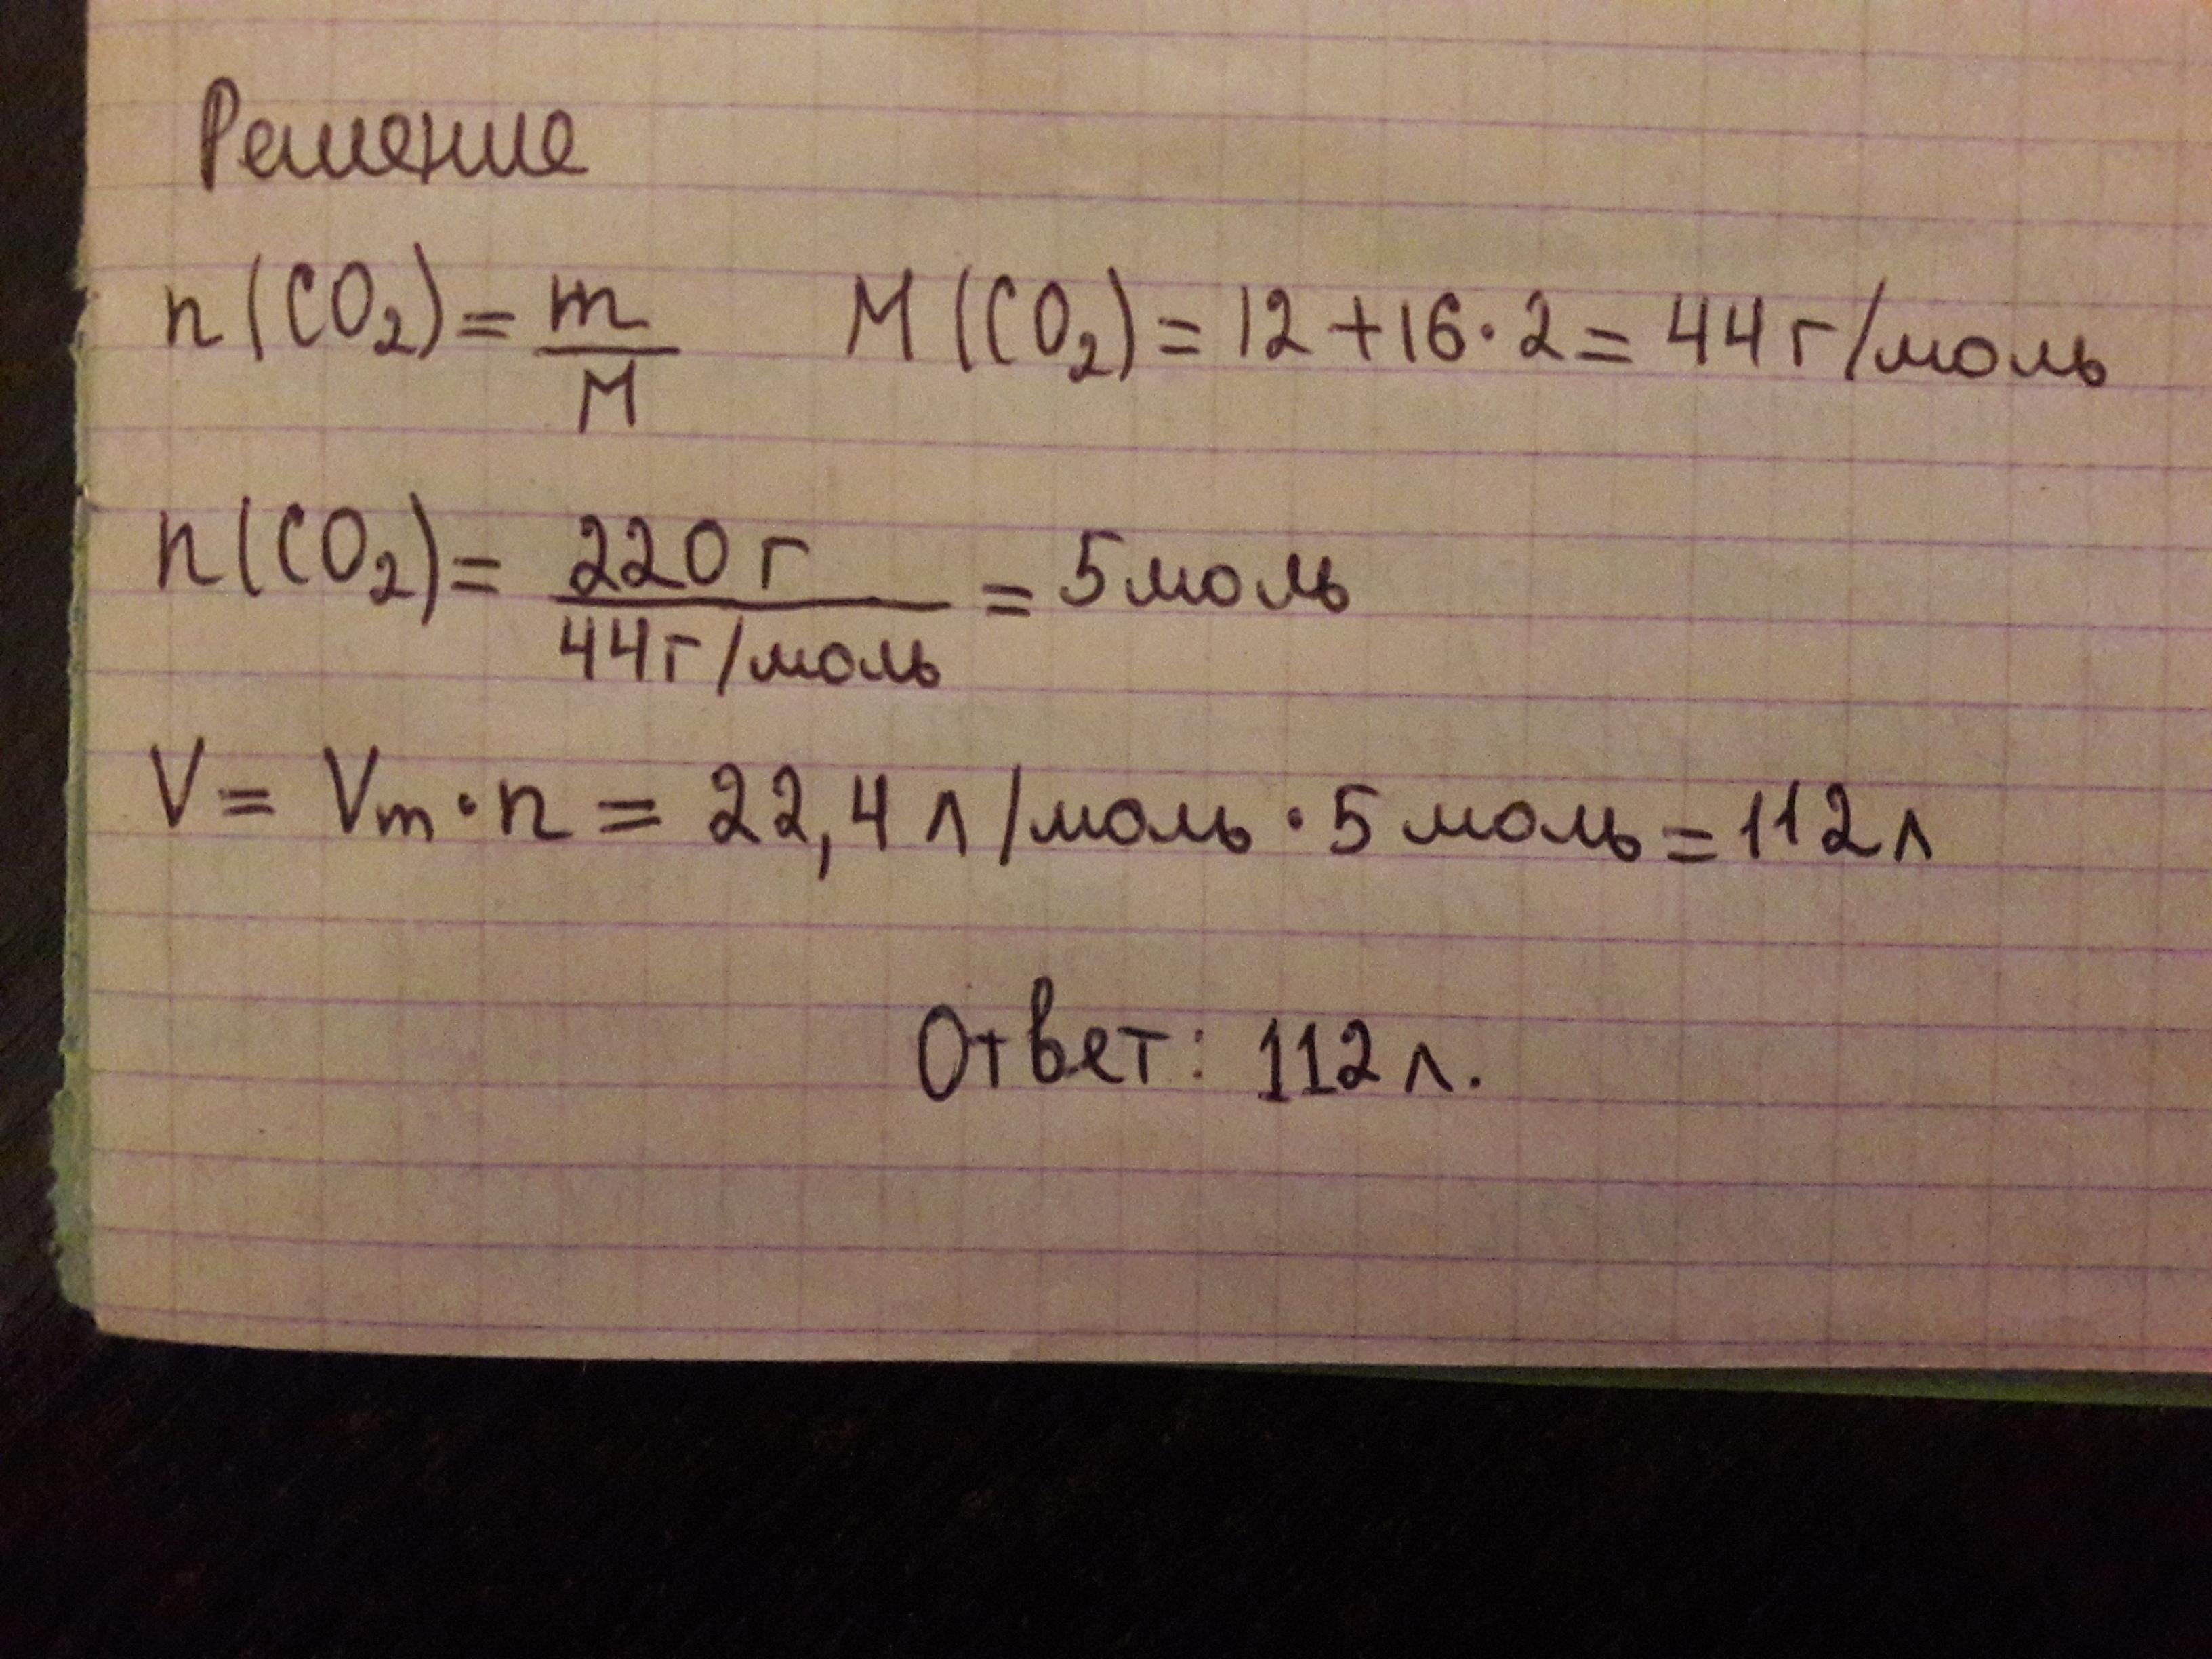 Решение
n(CO₂) = m/M M(CO₂) = 12 + 16 · 2 = 44 г/моль
n(CO₂) = 220 г / 44 г/моль = 5 моль
V = Vm · n = 22,4 л/моль · 5 моль = 112 л
Ответ: 112 л.